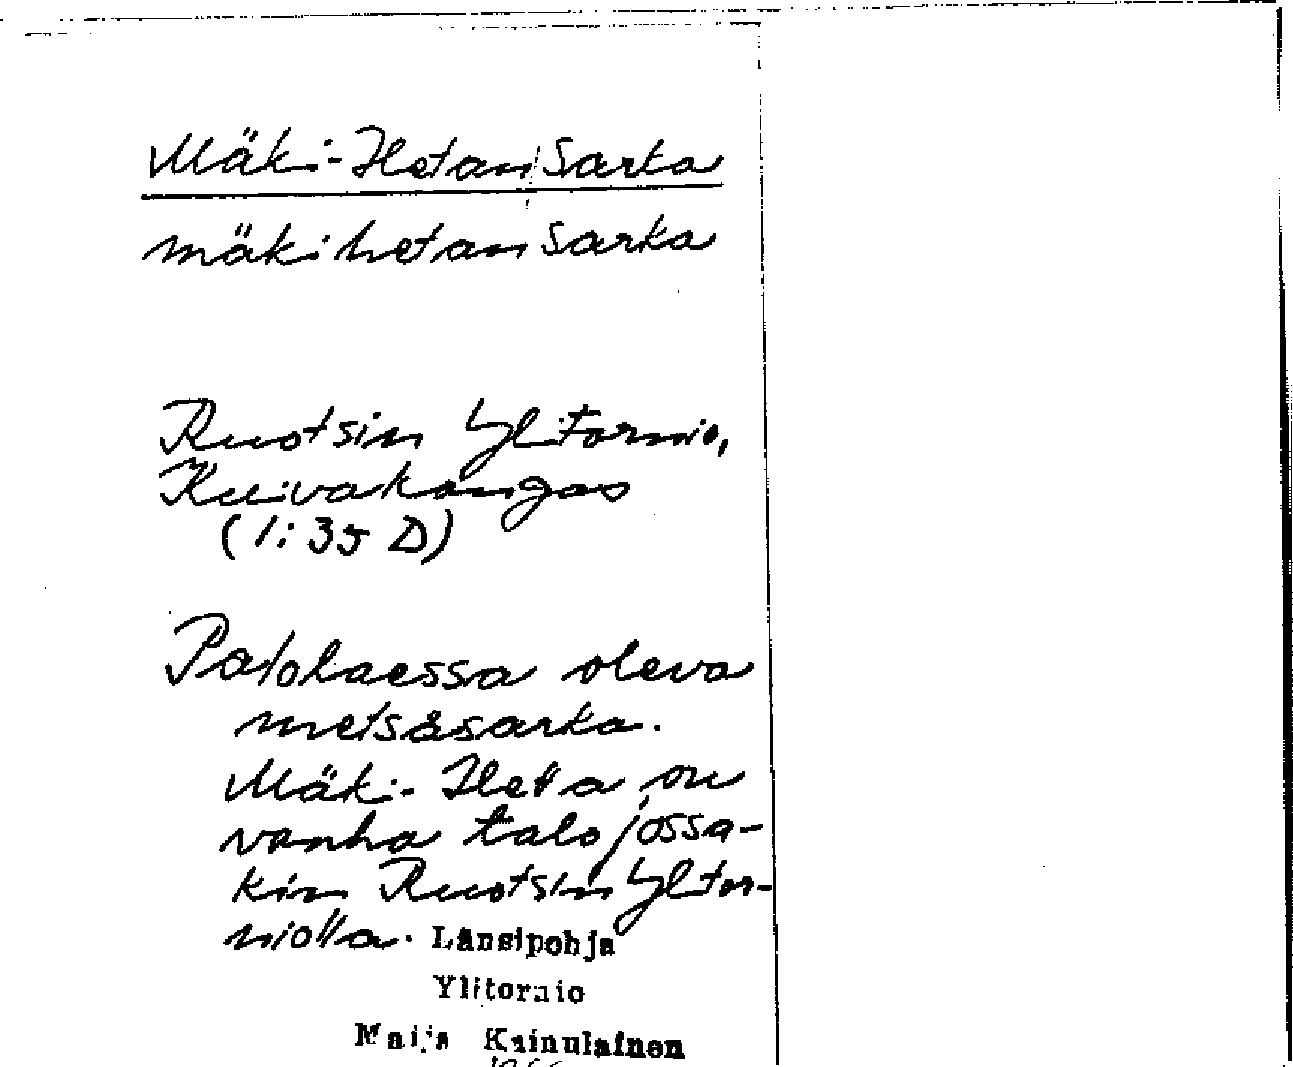 Mäki-Hetan/sarka
mäkihetan sarka
Ruotsin Ylitornio,
Kuivakangas
(1:35 D)
Palolaessa oleva
metsäsarka.
Mäki-Heta on
vanha talo jossa-
kin Ruotsin Ylitor-
niolla. Länsipohja
Ylitornio
Maija Kainulainen